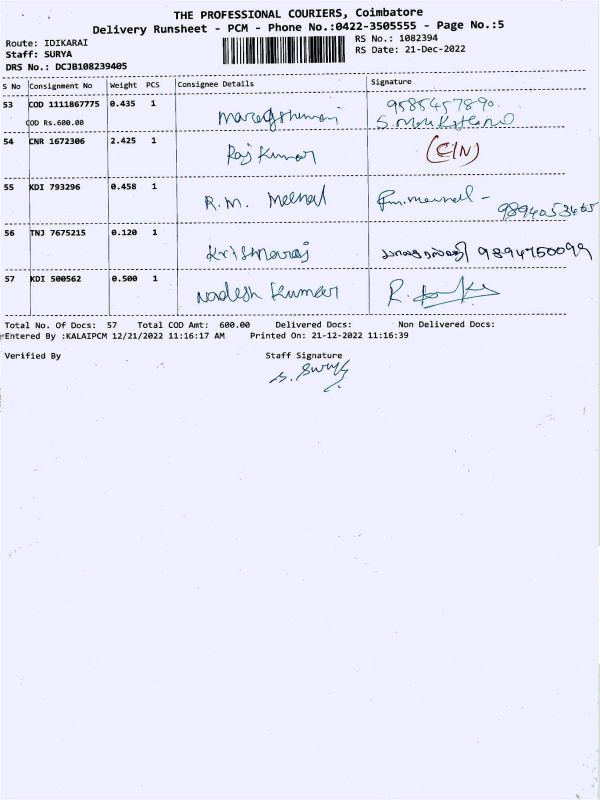 THE PROFESSIONAL COURIERS, Coimbatore
Delivery Runsheet - PCM - Phone No.:0422-3505555 - Page No.:5
Route: IDIKARAI
Staff: SURYA
DRS No.: DCJB108239405
RS No.: 1082394
RS Date: 21-Dec-2022
S No Consignment No Weight PCS Consignee Details Signature
53 COD 1111867775 0.435 1 9585457890.
COD Rs.600.00
54 CNR 1672306 2.425 1 Raj Kumar
55 KDI 793296 0.458 1 R.M. Meenal
9894053465
56 TNJ 7675215 0.120 1 Krishnaraj 9894750099
57 KDI 500562 0.500 1 Nadesh Kumar
Total No. Of Docs: 57 Total COD Amt: 600.00 Delivered Docs: Non Delivered Docs:
Entered By :KALAIPCM 12/21/2022 11:16:17 AM Printed On: 21-12-2022 11:16:39
Verified By Staff Signature
S. Surya